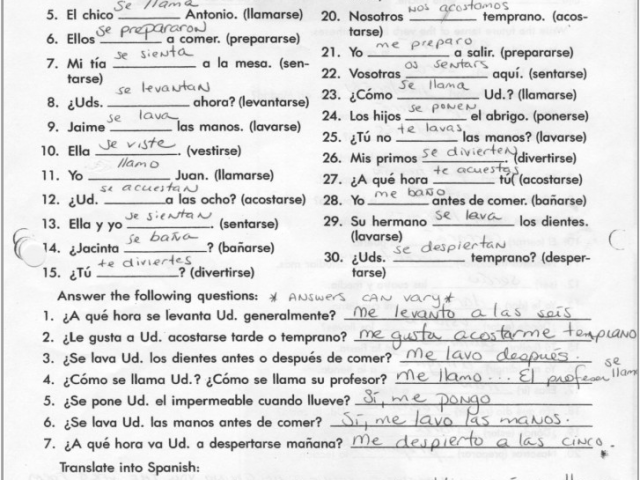 5. El chico se llama Antonio. (llamarse)
6. Ellos se prepararon a comer. (prepararse)
7. Mi tía se sienta a la mesa. (sen-
tarse)
8. ¿Uds. se levantan ahora? (levantarse)
9. Jaime se lava las manos. (lavarse)
10. Ella se viste. (vestirse)
11. Yo llamo Juan. (llamarse)
12. ¿Ud. se acuestan a las ocho? (acostarse)
13. Ella y yo se sientan. (sentarse)
14. ¿Jacinta se baña? (bañarse)
15. ¿Tú te diviertes? (divertirse)
20. Nosotros nos acostamos temprano. (acos-
tarse)
21. Yo me preparo a salir. (prepararse)
22. Vosotras os sentars aquí. (sentarse)
23. ¿Cómo se llama Ud.? (llamarse)
24. Los hijos se ponen el abrigo. (ponerse)
25. ¿Tú no te lavas las manos? (lavarse)
26. Mis primos se divierten. (divertirse)
27. ¿A qué hora te acuestas tú? (acostarse)
28. Yo me baño antes de comer. (bañarse)
29. Su hermano se lava los dientes.
(lavarse)
30. ¿Uds. se despiertan temprano? (desper-
tarse)
Answer the following questions: * ANSWERS CAN VARY *
1. ¿A qué hora se levanta Ud. generalmente? Me levanto a las seis
2. ¿Le gusta a Ud. acostarse tarde o temprano? me gusta acostarme temprano
3. ¿Se lava Ud. los dientes antes o después de comer? Me lavo después.
4. ¿Cómo se llama Ud.? ¿Cómo se llama su profesor? Me llamo... El profesor se llam
5. ¿Se pone Ud. el impermeable cuando llueve? Sí, me pongo
6. ¿Se lava Ud. las manos antes de comer? Sí, me lavo las manos.
7. ¿A qué hora va Ud. a despertarse mañana? Me despierto a las cinco.
Translate into Spanish: